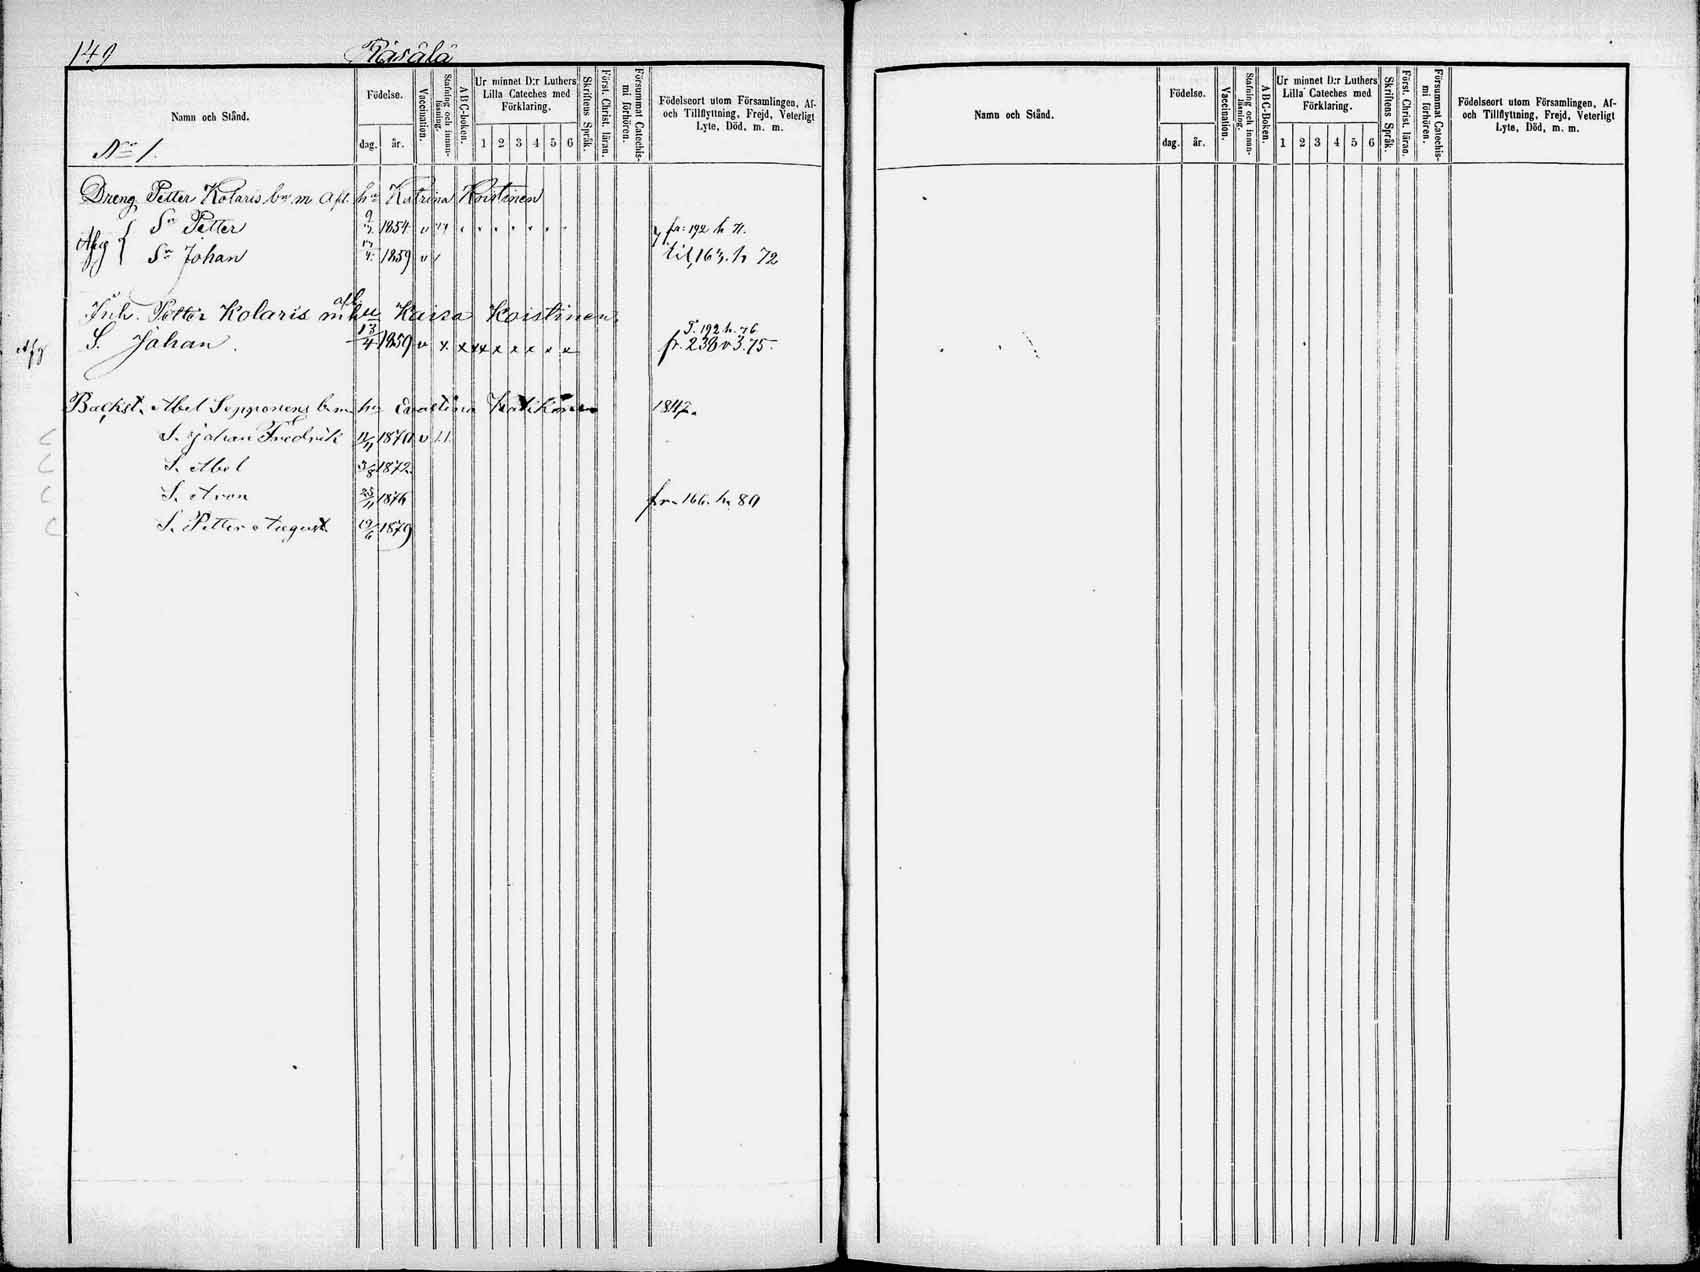 149 Räsälä
Namn och Stånd.
Födelse.
dag. år.
Vaccination.
Stafning och innanläsning.
ABC-boken.
Ur minnet D:r Luthers Lilla Cateches med Förklaring.
1 2 3 4 5 6
Skriftens Språk.
Först. Christ. läran.
Försummat Catechismi förhören.
Födelseort utom Församlingen, Af- och Tillflyttning, Frejd, Veterligt Lyte, Död, m. m.
No 1.
Dreng Petter Kolaris b. m afl. hu Katrina Koistinen
Afg Sn Petter 1854 v fr: 192 h 71.
Sn Johan 17/4 1859 v til 163. h 72
Inh. Petter Kolaris m afl hu Kaisa Koistinen.
Afg S. Johan. 13/4 1859 v x x x x x x x x x T. 192 h. 76
fr. 238 v 3. 75.
Backst. Abel Sepponens b. m. hu 1847.
S. Johan Fredrik 1870 v
S. Abel 1872.
S. Aron 25/11 1876 fr. 166. h. 80
S. Petter August 19/6 1879
Namn och Stånd.
Födelse.
dag. år.
Vaccination.
Stafning och innanläsning.
ABC-Boken.
Ur minnet D:r Luthers Lilla Cateches med Förklaring.
1 2 3 4 5 6
Skriftens Språk.
Först. Christ. läran.
Försummat Catechismi förhören.
Födelseort utom Församlingen, Af- och Tillflyttning, Frejd, Veterligt Lyte, Död, m. m.